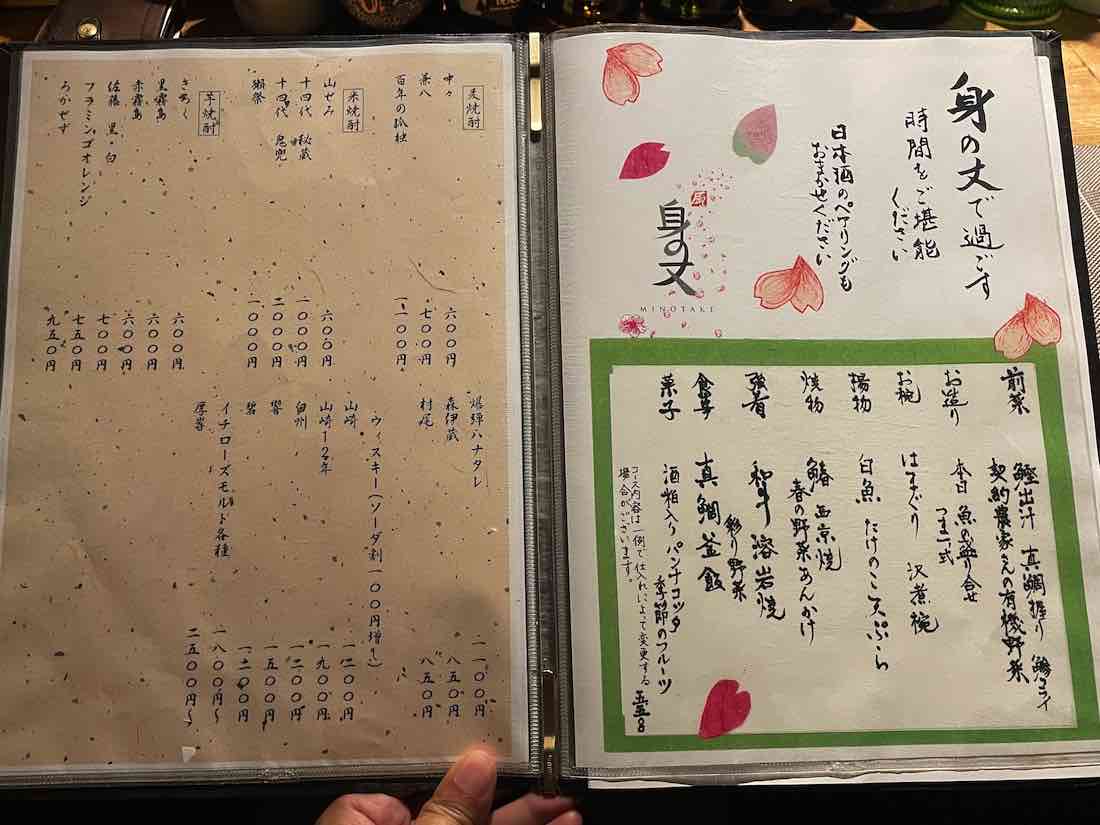 身の丈で過ごす
時間をご堪能
ください
日本酒のペアリングも
おまかせください
身の丈
MINOTAKE
前菜 鰹出汁 真鯛握り
契約農家さんの有機野菜
お造り 本日 魚の盛り合せ
つま一式
お椀 はまぐり 沢煮椀
揚物 白魚 たけのこ天ぷら
焼物 鰆 西京焼
春の野菜あんかけ
強肴 和牛 溶岩焼
彩り野菜
食事 真鯛釜飯
菓子 酒粕入りパンナコッタ
季節のフルーツ
コース内容は一例で仕入れによって変更する
場合がございます。
麦焼酎
中々 六〇〇円
兼八 七〇〇円
百年の孤独 一一〇〇円
米焼酎
山せみ 六〇〇円
十四代 秘蔵 一〇〇〇円
十四代 鬼兜 二〇〇〇円
獺祭 一〇〇〇円
芋焼酎
きろく 六〇〇円
黒霧島 六〇〇円
赤霧島 六〇〇円
佐藤 黒・白 七〇〇円
フラミンゴオレンジ 七五〇円
ろかせず 九五〇円
爆弾ハナタレ 一一〇〇円
森伊蔵 八五〇円
村尾 八五〇円
ウィスキー(ソーダ割一〇〇円増し)
山崎 一二〇〇円
山崎12年 一九〇〇円
白州 一二〇〇円
響 一五〇〇円
碧 一二〇〇円
イチローズモルト各種 一八〇〇円〜
厚岸 二五〇〇円〜